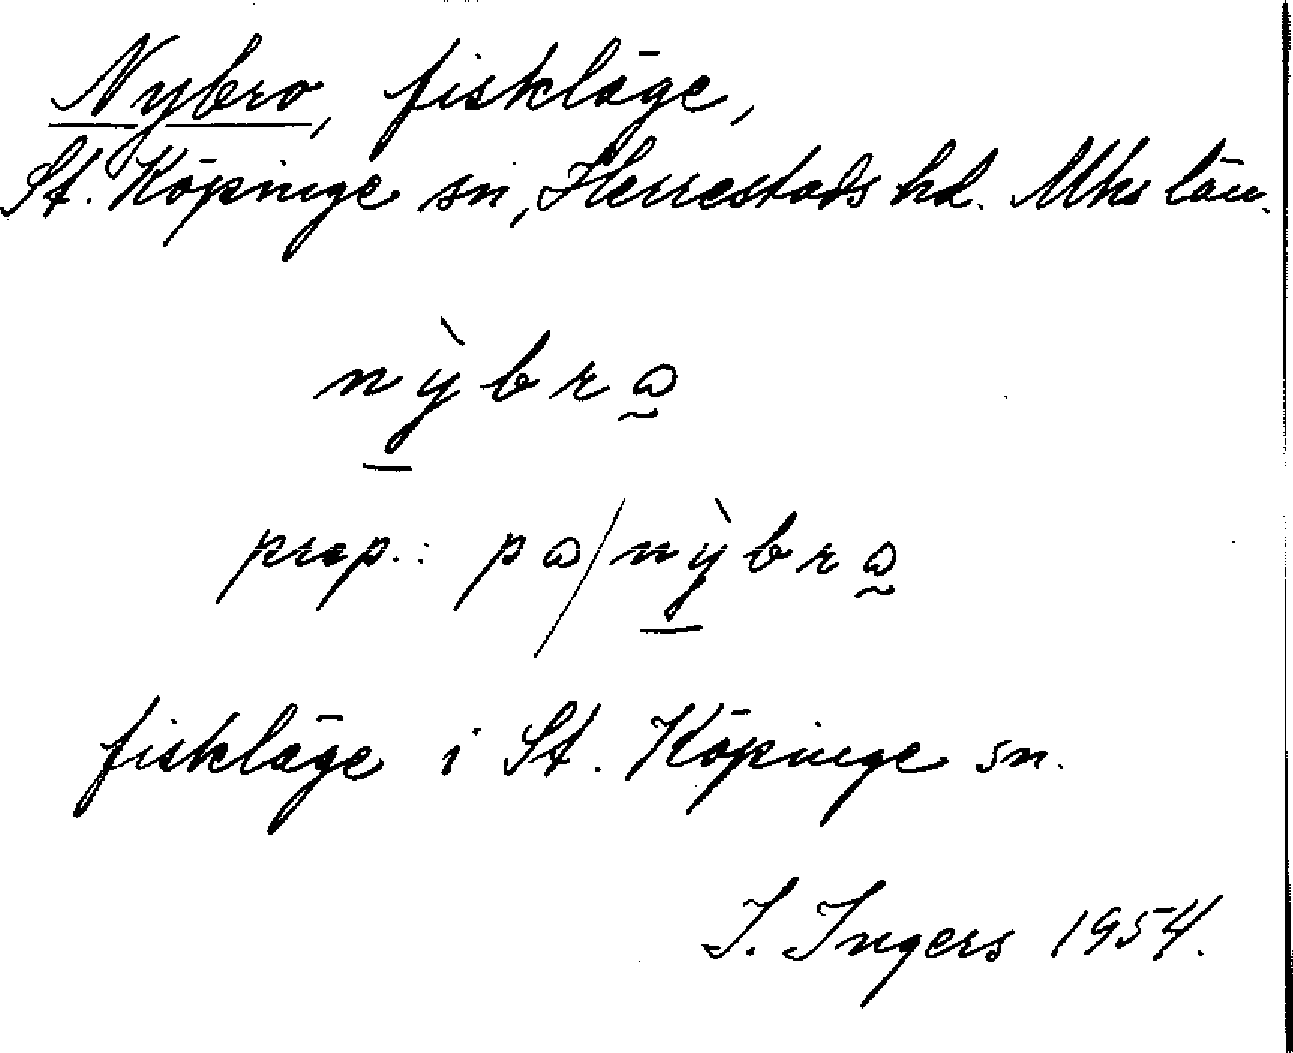 Nybro, fiskläge,
St. Köpinge sn, Herrestads hd. Mhs län.
nỳbrꙍ
prep.: pꙍ/nỳbrꙍ
fiskläge i St. Köpinge sn.
I. Ingers 1954.